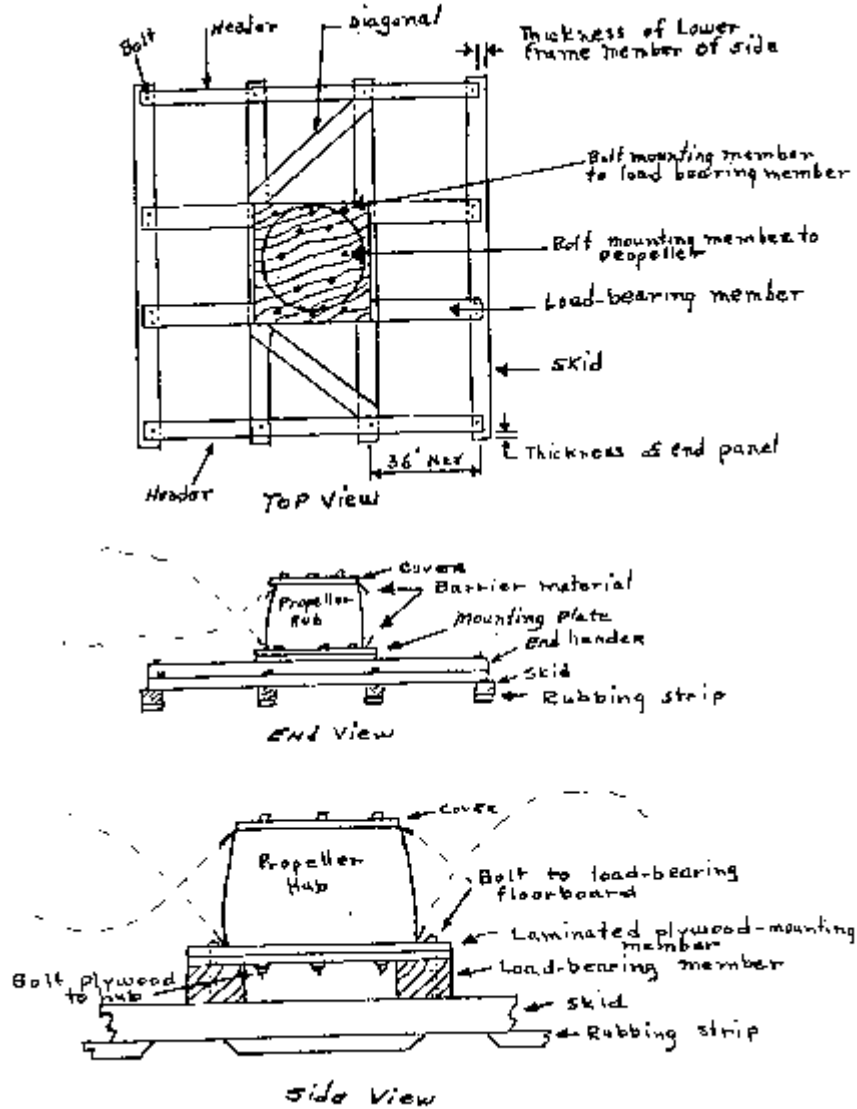 Bolt
Header
Diagonal
Thickness of Lower
frame member of side
Bolt mounting member
to load bearing member
Bolt mounting member to
propeller
Load-bearing member
Skid
36"
Thickness of end panel
Header
Top View
Covers
Barrier material
Propeller
Hub
Mounting Plate
End header
Skid
Rubbing strip
End View
Cover
Propeller
Hub
Bolt to load-bearing
floorboard
Laminated plywood-mounting
member
Bolt plywood
to hub
Load-bearing member
Skid
Rubbing strip
Side View